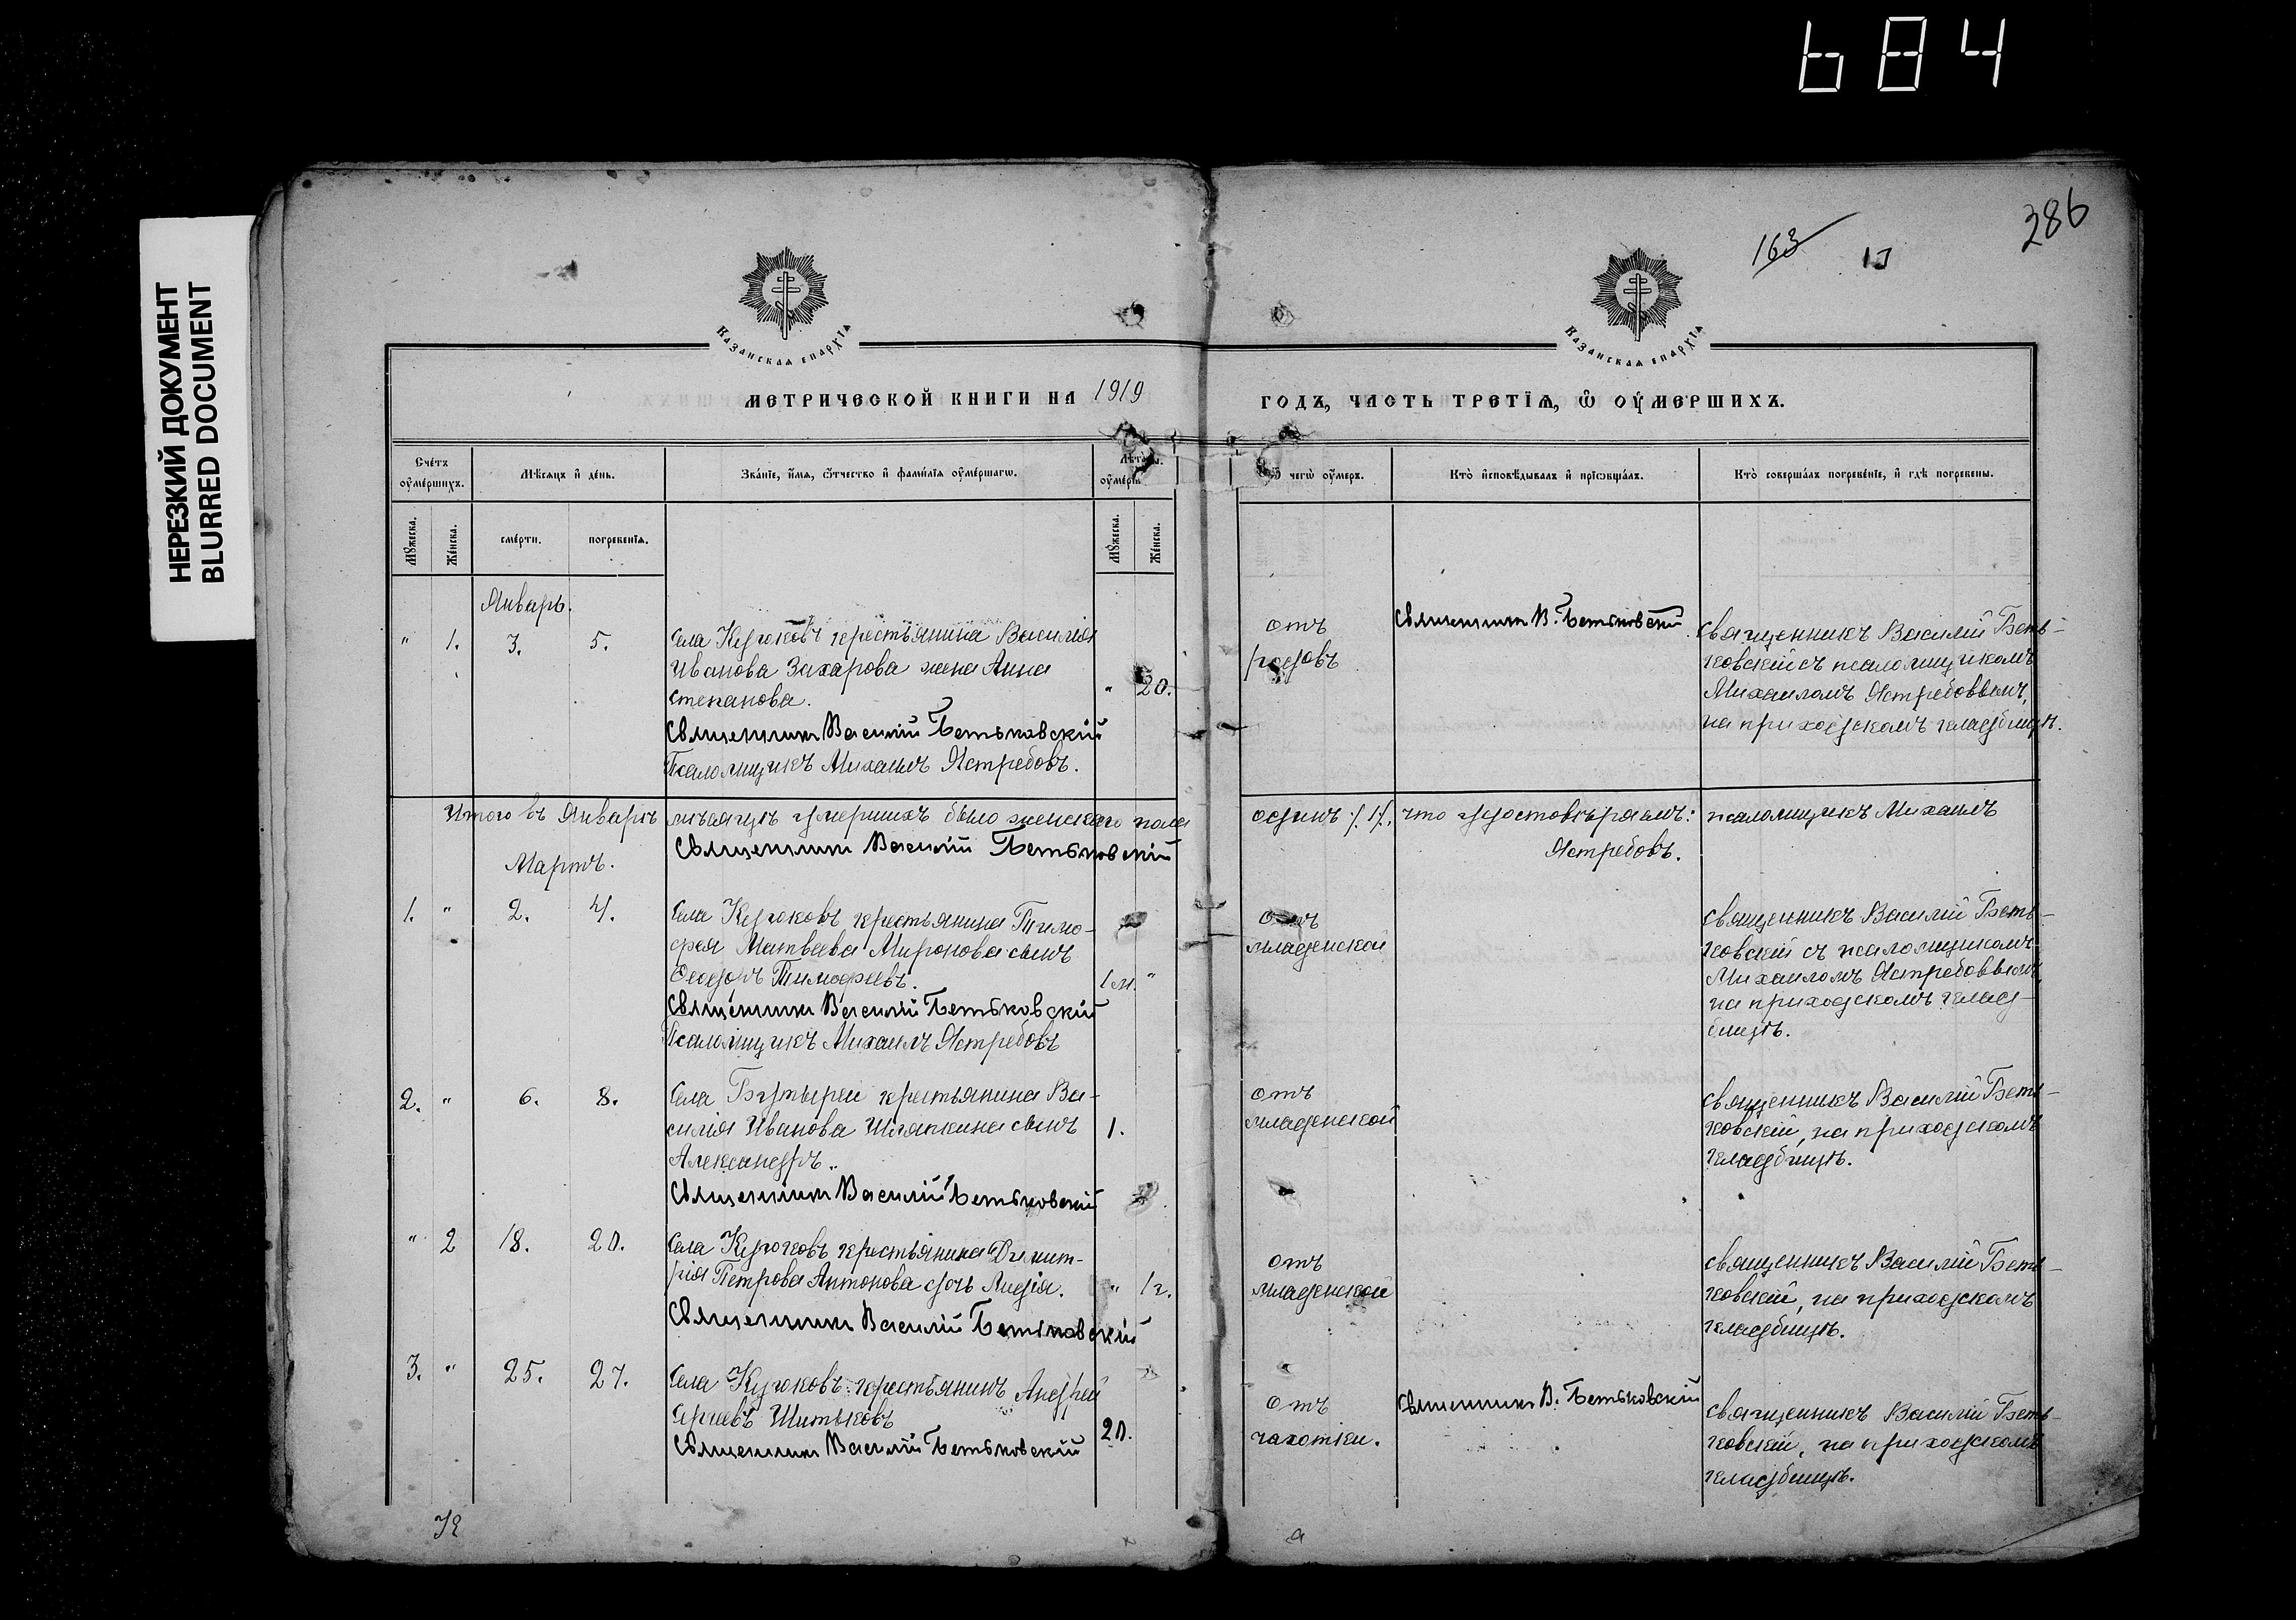 684
НЕРЕЗКИЙ ДОКУМЕНТ
BLURRED DOCUMENT
286
163
Казанская епархїѧ
Казанская епархїѧ
МЕТРИЧЕСКОЙ КНИГИ НА 1919 ГОДЪ, ЧАСТЬ ТРЕТЇѦ, Ѽ ОУМЕРШИХЪ.
Счетъ оумершихъ.
Мѣсѧцъ и день.
Званїе, имѧ, ѿчество и фамилїѧ оумершагѡ.
Лѣта оумерш.
Ѿ чегѡ оумеръ.
Кто исповѣдывалъ и прїѡбщалъ.
Кто совершалъ погребенїе, и гдѣ погребены.
Мꙋжеска.
Женска.
смерти.
погребенїѧ.
Мꙋжеска.
Женска.
Январь.
" 1. 3. 5.
Села Кудюковъ крестьянина Василія
Иванова Захарова жена Анна
Степанова.
" 20.
Священникъ Василій Бетьковскій
Псаломщикъ Михаилъ Ястребовъ.
отъ
родовъ
Священникъ В. Бетьковскій
священникъ Василій Беть-
ковскій съ псаломщикомъ
Михаиломъ Ястребовымъ,
на приходскомъ кладбищѣ.
Итого въ Январѣ мѣсяцѣ умершихъ было женскаго пола одинъ /.1/., что удостовѣряемъ: псаломщикъ Михаилъ
Священникъ Василій Бетьковскій
Ястребовъ.
Мартъ.
1. " 2. 4.
Села Кудюковъ крестьянина Тимо-
фея Матвеева Миронова сынъ
Ѳеодоръ Тимофеевъ.
1 м. "
Священникъ Василій Бетьковскій
Псаломщикъ Михаилъ Ястребовъ
отъ
младенской
священникъ Василій Беть-
ковскій съ псаломщикомъ
Михаиломъ Ястребовымъ,
на приходскомъ клад-
бищѣ.
2. " 6. 8.
Села Бутыреи крестьянина Ва-
силія Иванова Шляпкина сынъ
Александръ.
1.
Священникъ Василій Бетьковскій
отъ
младенской
священникъ Василій Беть-
ковскій, на приходскомъ
кладбищѣ.
" 2 18. 20.
Села Кудюковъ крестьянина Димит-
рія Петрова Антонова дочь Лидія.
" 1 г.
Священникъ Василій Бетьковскій
отъ
младенской
священникъ Василій Беть-
ковскій, на приходскомъ
кладбищѣ.
3. " 25. 27.
Села Кудюковъ крестьянинъ Андрей
Шитьковъ
20.
Священникъ Василій Бетьковскій
отъ
чахотки.
Священникъ В. Бетьковскій
священникъ Василій Беть-
ковскій, на приходскомъ
кладбищѣ.